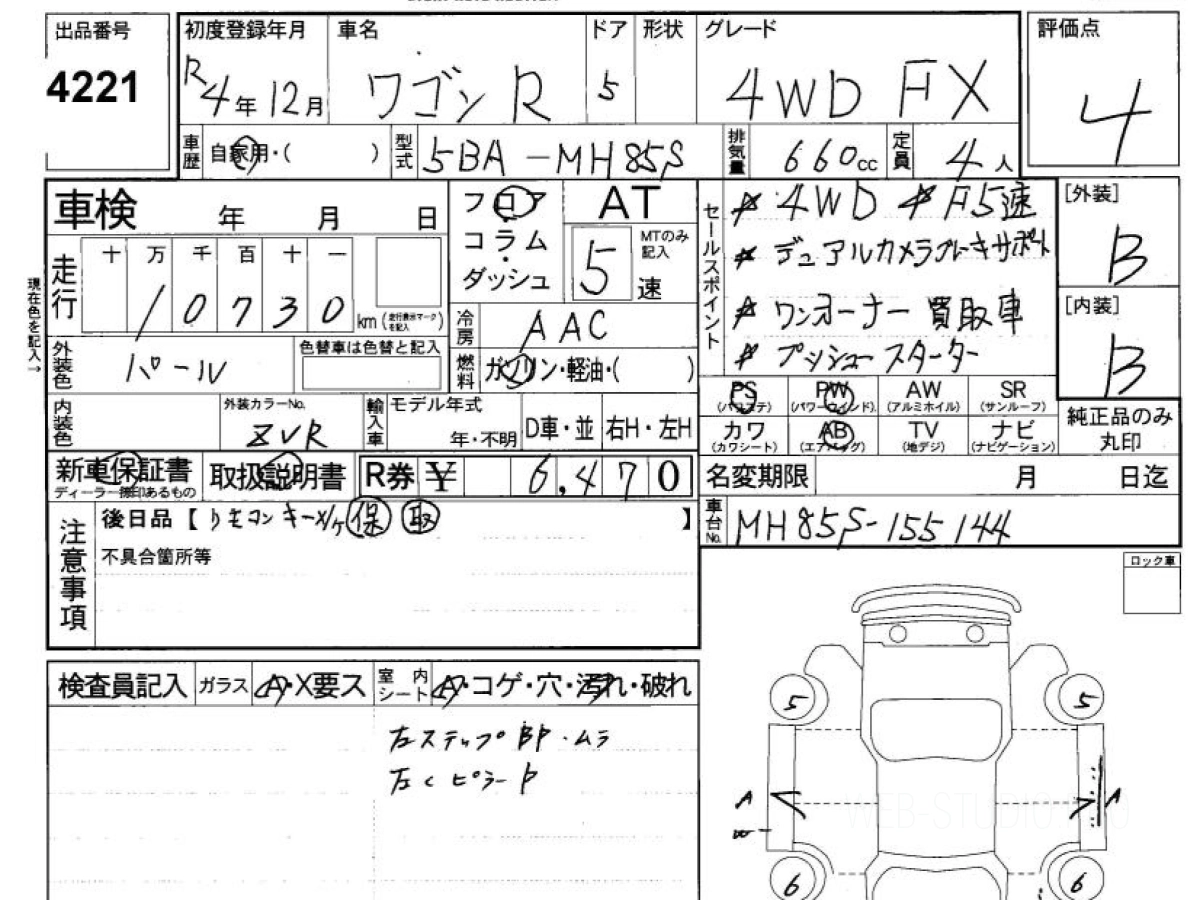 出品番号
4221
初度登録年月 車名 ドア 形状 グレード 評価点
R4年12月 ワゴン R 5 4WD FX 4
車歴 自家用・( ) 型式 5BA-MH85S 排気量 660cc 定員 4人
車検 年 月 日
フロア
コラム
・
ダッシュ
AT
5
MTのみ
記入
速
セールスポイント
4WD F5速
デュアルカメラブレーキサポート
ワンオーナー 買取車
プッシュスターター
[外装]
B
[内装]
B
現在色を記入→
走行 十 万 千 百 十 一
1 0 7 3 0 km (走行表示マークを記入)
冷房 AAC
外装色 パール
色替車は色替と記入
燃料 ガソリン・軽油・( )
PS (パワステ) PW (パワーウインド) AW (アルミホイル) SR (サンルーフ)
カワ (カワシート) AB (エアバッグ) TV (地デジ) ナビ (ナビゲーション)
純正品のみ
丸印
内装色 外装カラーNo. ZVR 輸入車 モデル年式 年・不明 D車・並 右H・左H
新車保証書
ディーラー捺印あるもの
取扱説明書 R券 ¥ 6,470
名変期限 月 日迄
注意事項
後日品【リモコンキーX1ケ 保 取 】
不具合箇所等
車台No. MH85S-155144
ロック車
検査員記入 ガラス A・X要ス 室内シート A・コゲ・穴・汚れ・破れ
左ステップBP・ムラ
左CピラーP
5 5
A A
W
6 6
WEB-STUDIO.PRO